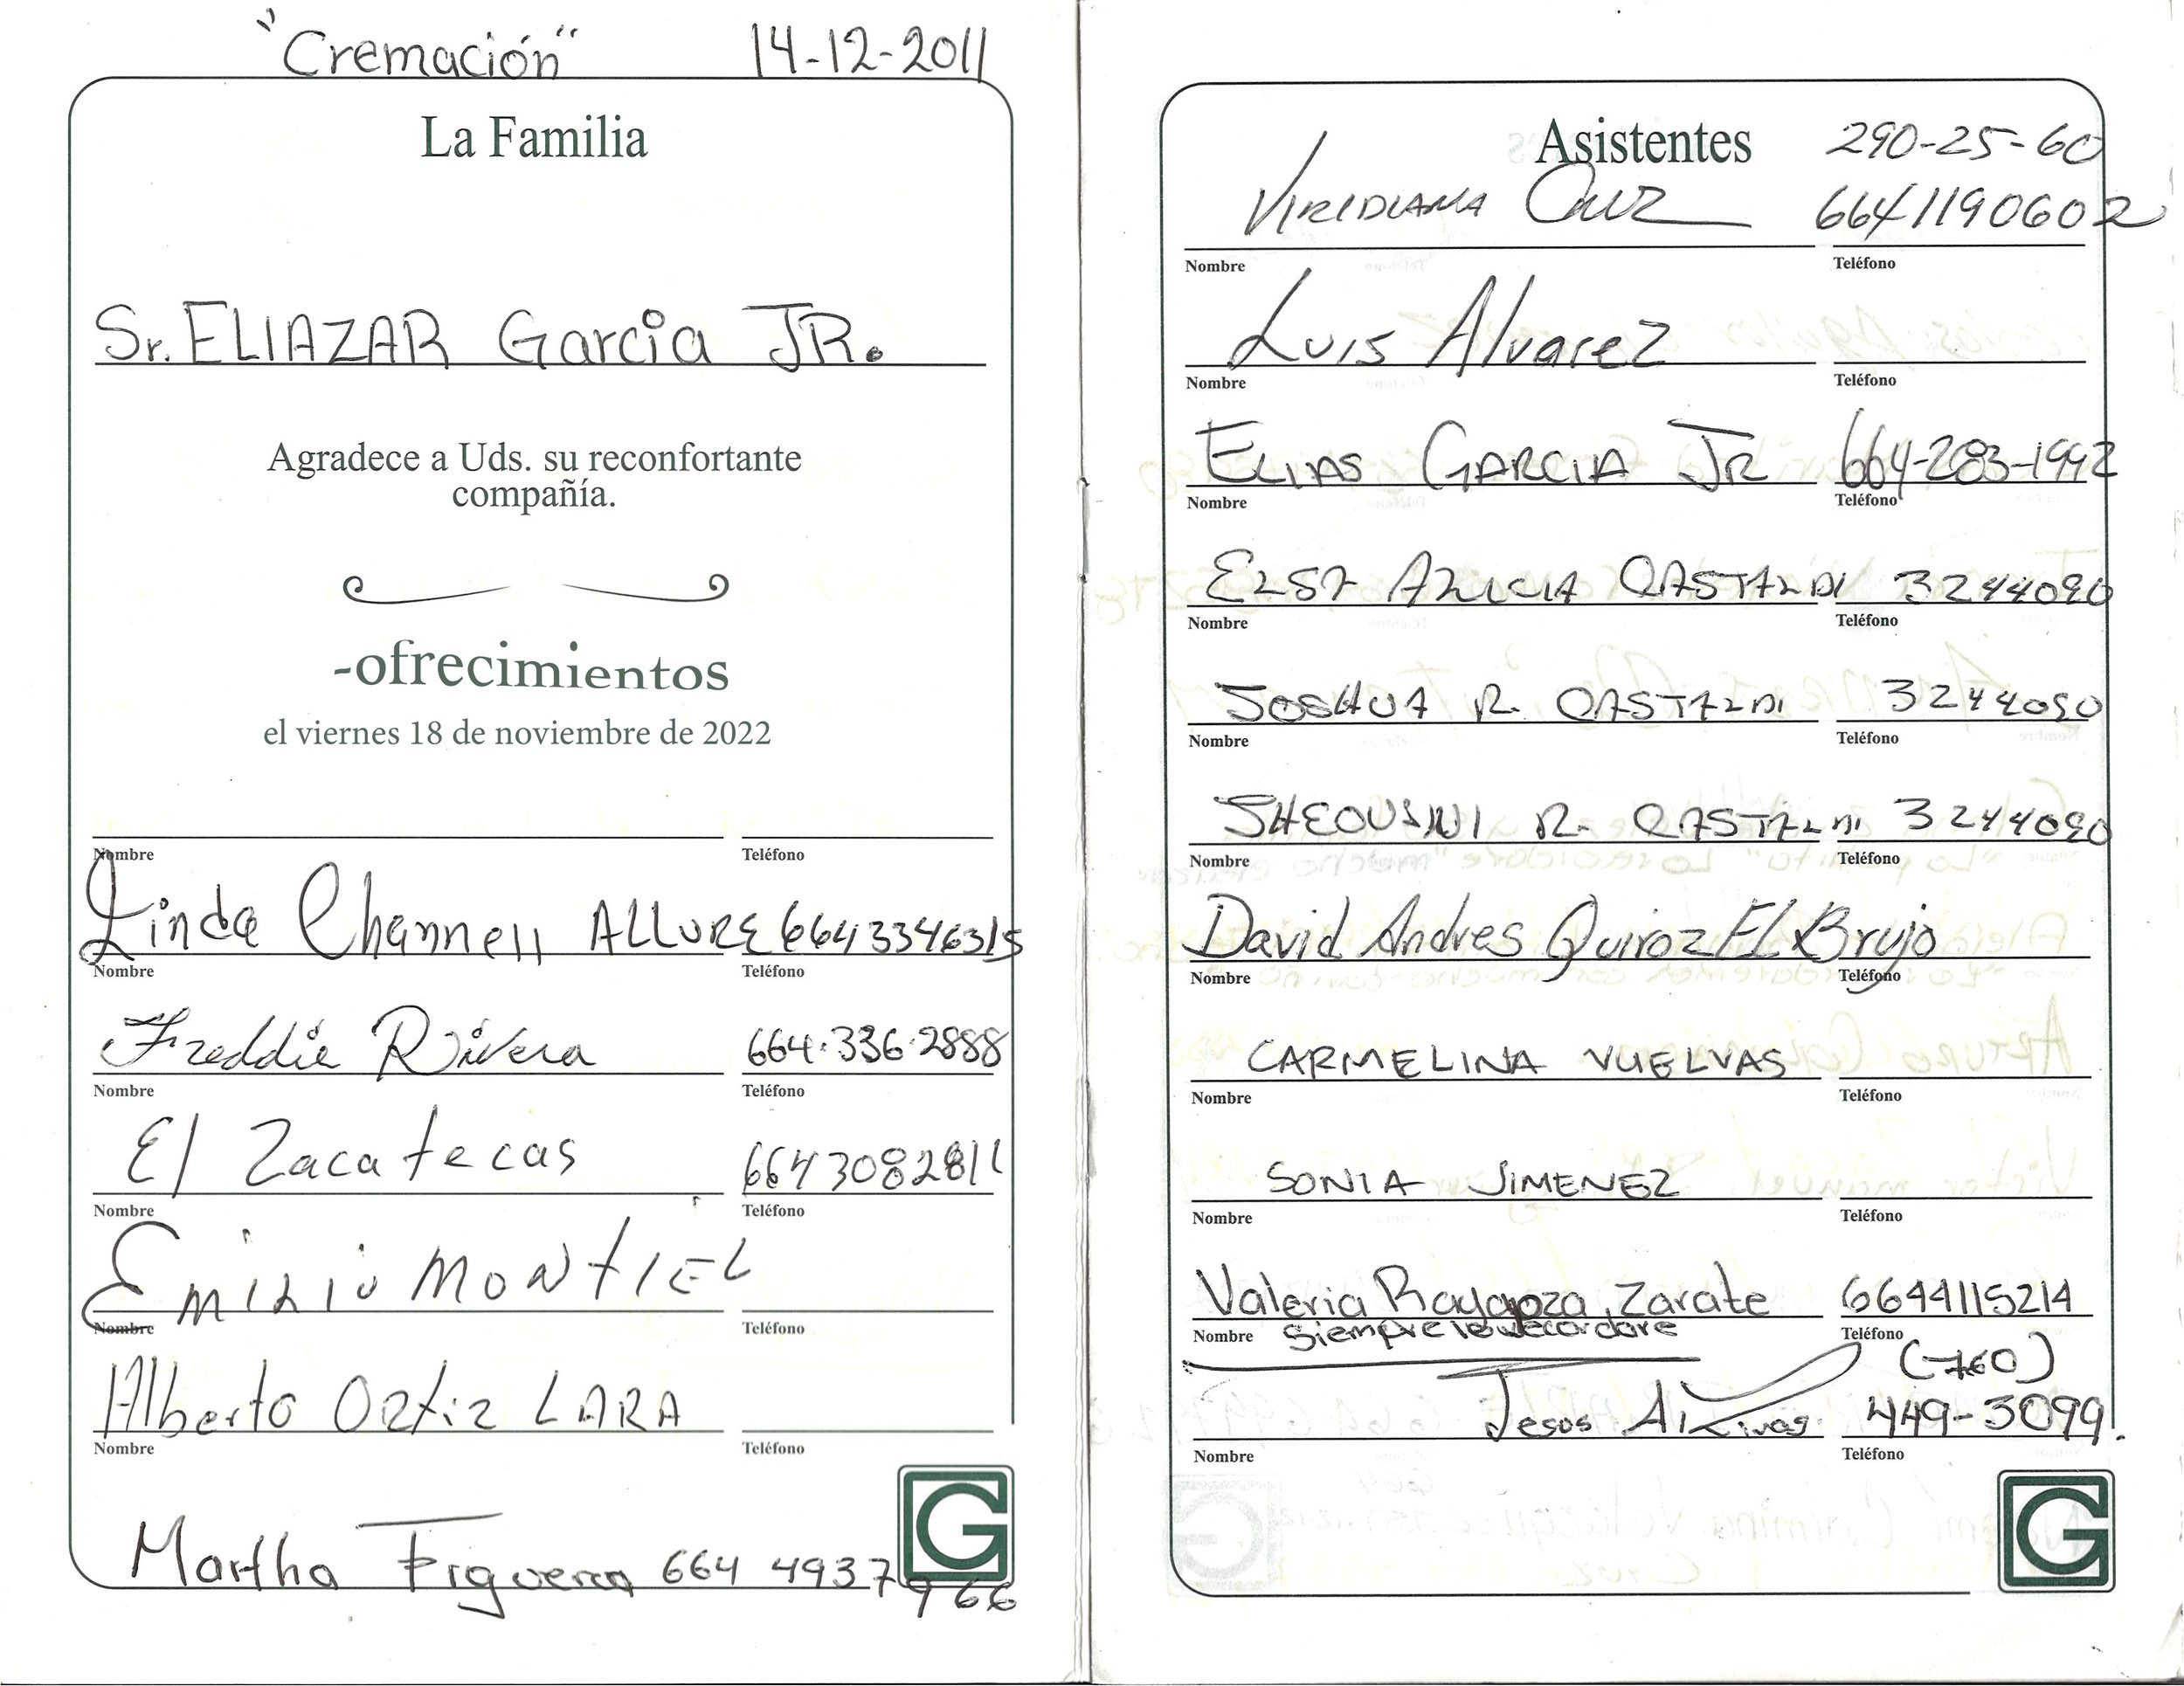 "Cremación" 14-12-2011
La Familia
Sr. ELIAZAR Garcia JR.
Agradece a Uds. su reconfortante
compañía.
-ofrecimientos
el viernes 18 de noviembre de 2022
Nombre Teléfono
Linda Channell ALLURE 6643346315
Nombre Teléfono
Freddie Rivera 664·336·2888
Nombre Teléfono
El Zacatecas 6643082811
Nombre Teléfono
Emilio MONTIEL
Nombre Teléfono
Alberto Ortiz LARA
Nombre Teléfono
Martha Figueroa 664 4937966
G
Asistentes 290-25-60
VIRIDIANA CRUZ 6641190602
Nombre Teléfono
Luis Alvarez
Nombre Teléfono
ELIAS GARCIA JR 664-283-1992
Nombre Teléfono
ELSA ALICIA CASTALDI 3244090
Nombre Teléfono
JOSHUA R. CASTALDI 3244090
Nombre Teléfono
R. CASTALDI 3244090
Nombre Teléfono
David Andres Quiroz El Brujo
Nombre Teléfono
CARMELINA VUELVAS
Nombre Teléfono
SONIA JIMENEZ
Nombre Teléfono
Valeria Raygoza Zarate 6644115214
Nombre siempre lo recordare Teléfono
(760)
Jesus 449-3099
Nombre Teléfono
G